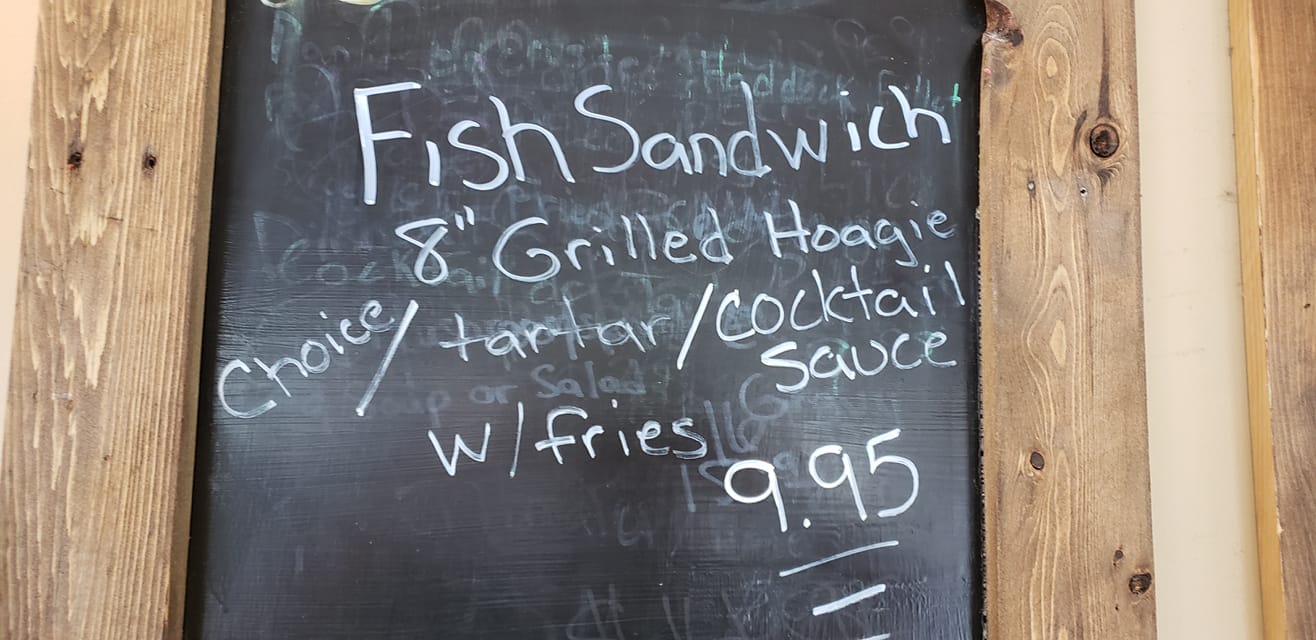 Fish Sandwich
8" Grilled Hoagie
Choice/ tartar/cocktail
sauce
or Salad
w/fries
9.95